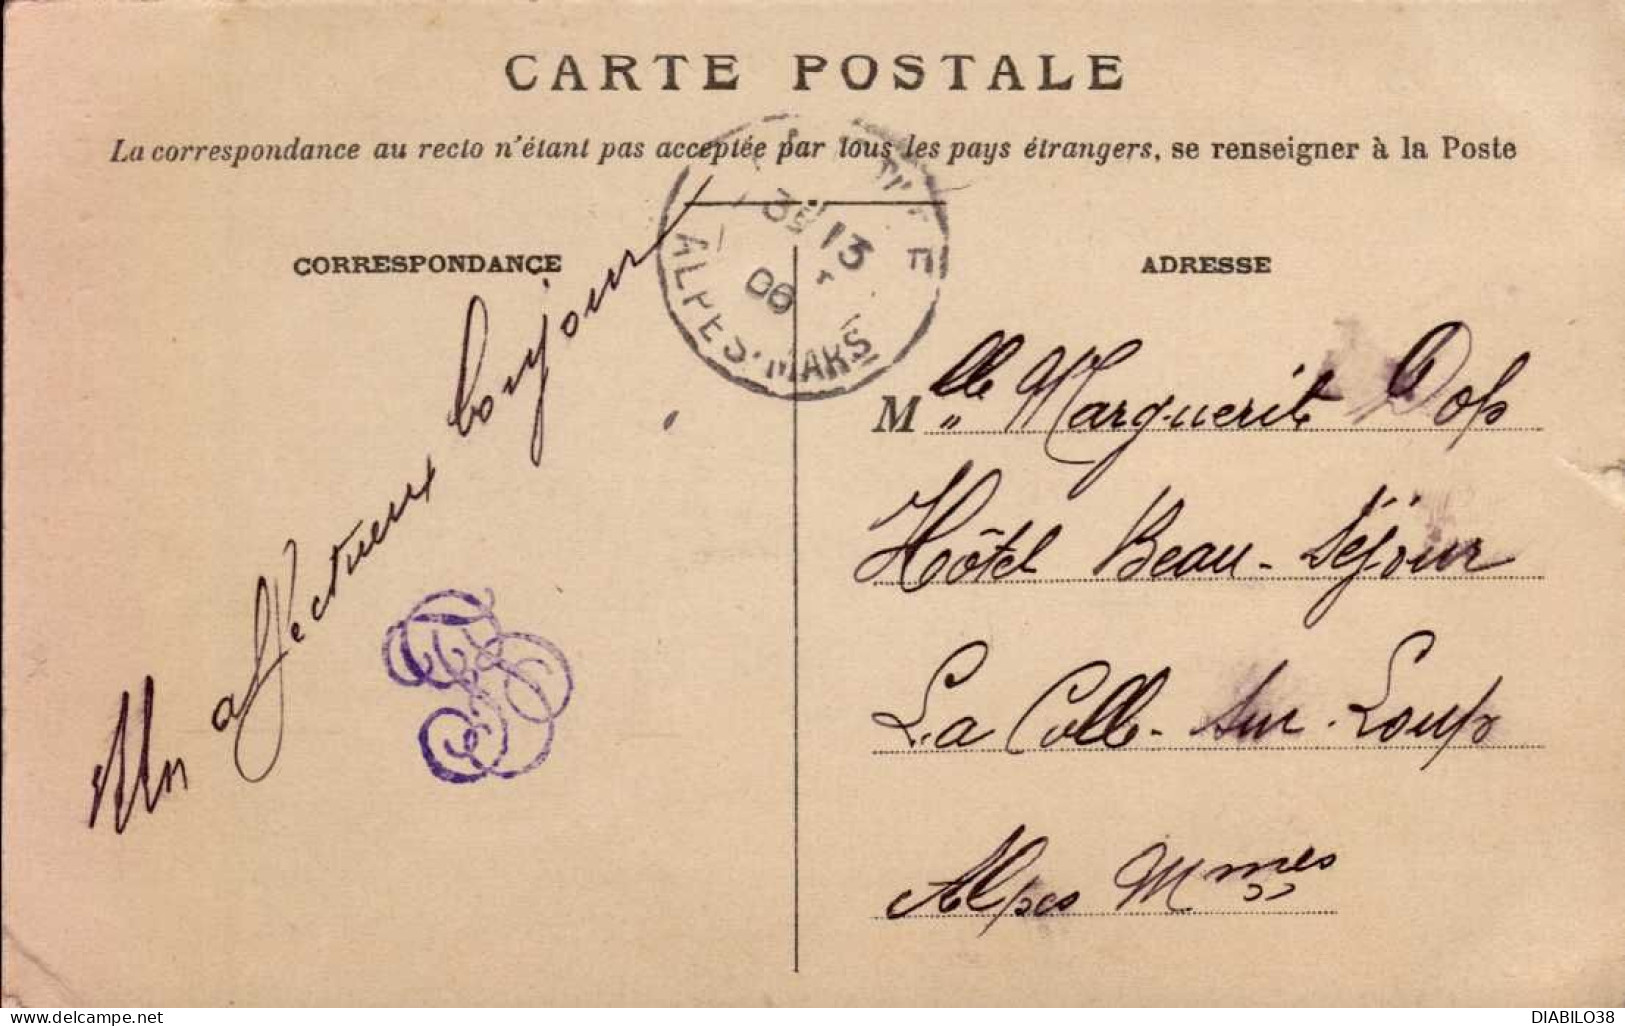 CARTE POSTALE
La correspondance au recto n'étant pas acceptée par tous les pays étrangers, se renseigner à la Poste
CORRESPONDANCE
ADRESSE
ALPES-MARS
13
06
Un affectueux bonjour
Mlle Marguerite Dop
Hôtel Beau-Séjour
La Colle-sur-Loup
Alpes Mmes
delcampe.net
DIABILO38